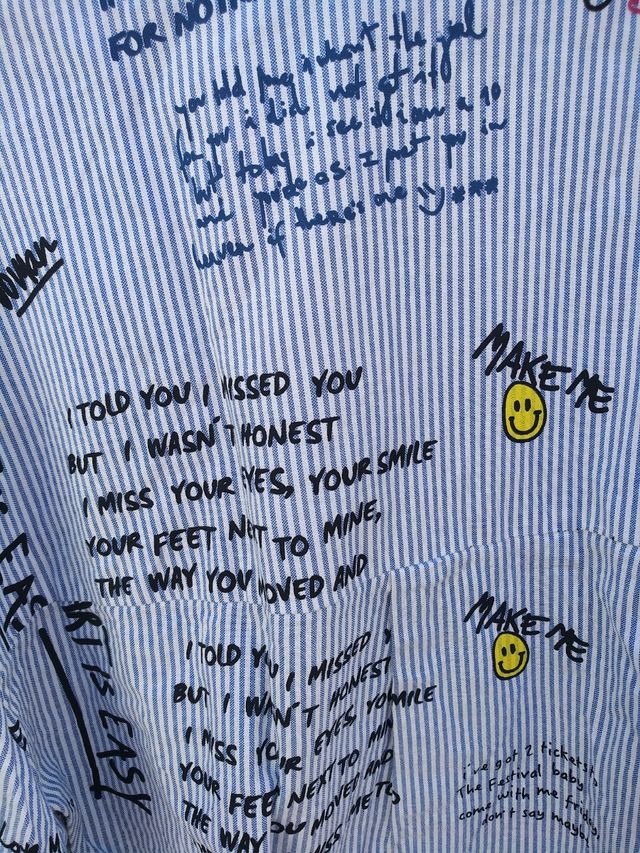 FOR NOTH
you told me about the
for you i did not get it
but today i see it i am a 10
one
heven if there's one
WOMAN
MAKE ME
I TOLD YOU I MISSED YOU
BUT I WASN'T HONEST
I MISS YOUR EYES, YOUR SMILE
YOUR FEET NEXT TO MINE,
THE WAY YOU MOVED AND
EAS
ART IS EASY
MAKE ME
I TOLD YOU I MISSED
BUT I WASN'T HONEST
I MISS YOUR EYES, YOUR SMILE
YOUR FEET NEXT TO MIN
THE WAY YOU MOVED AND
ISS ME TO
i've got 2 tickets to
The Festival baby
come with me friday
don't say maybe
Love M